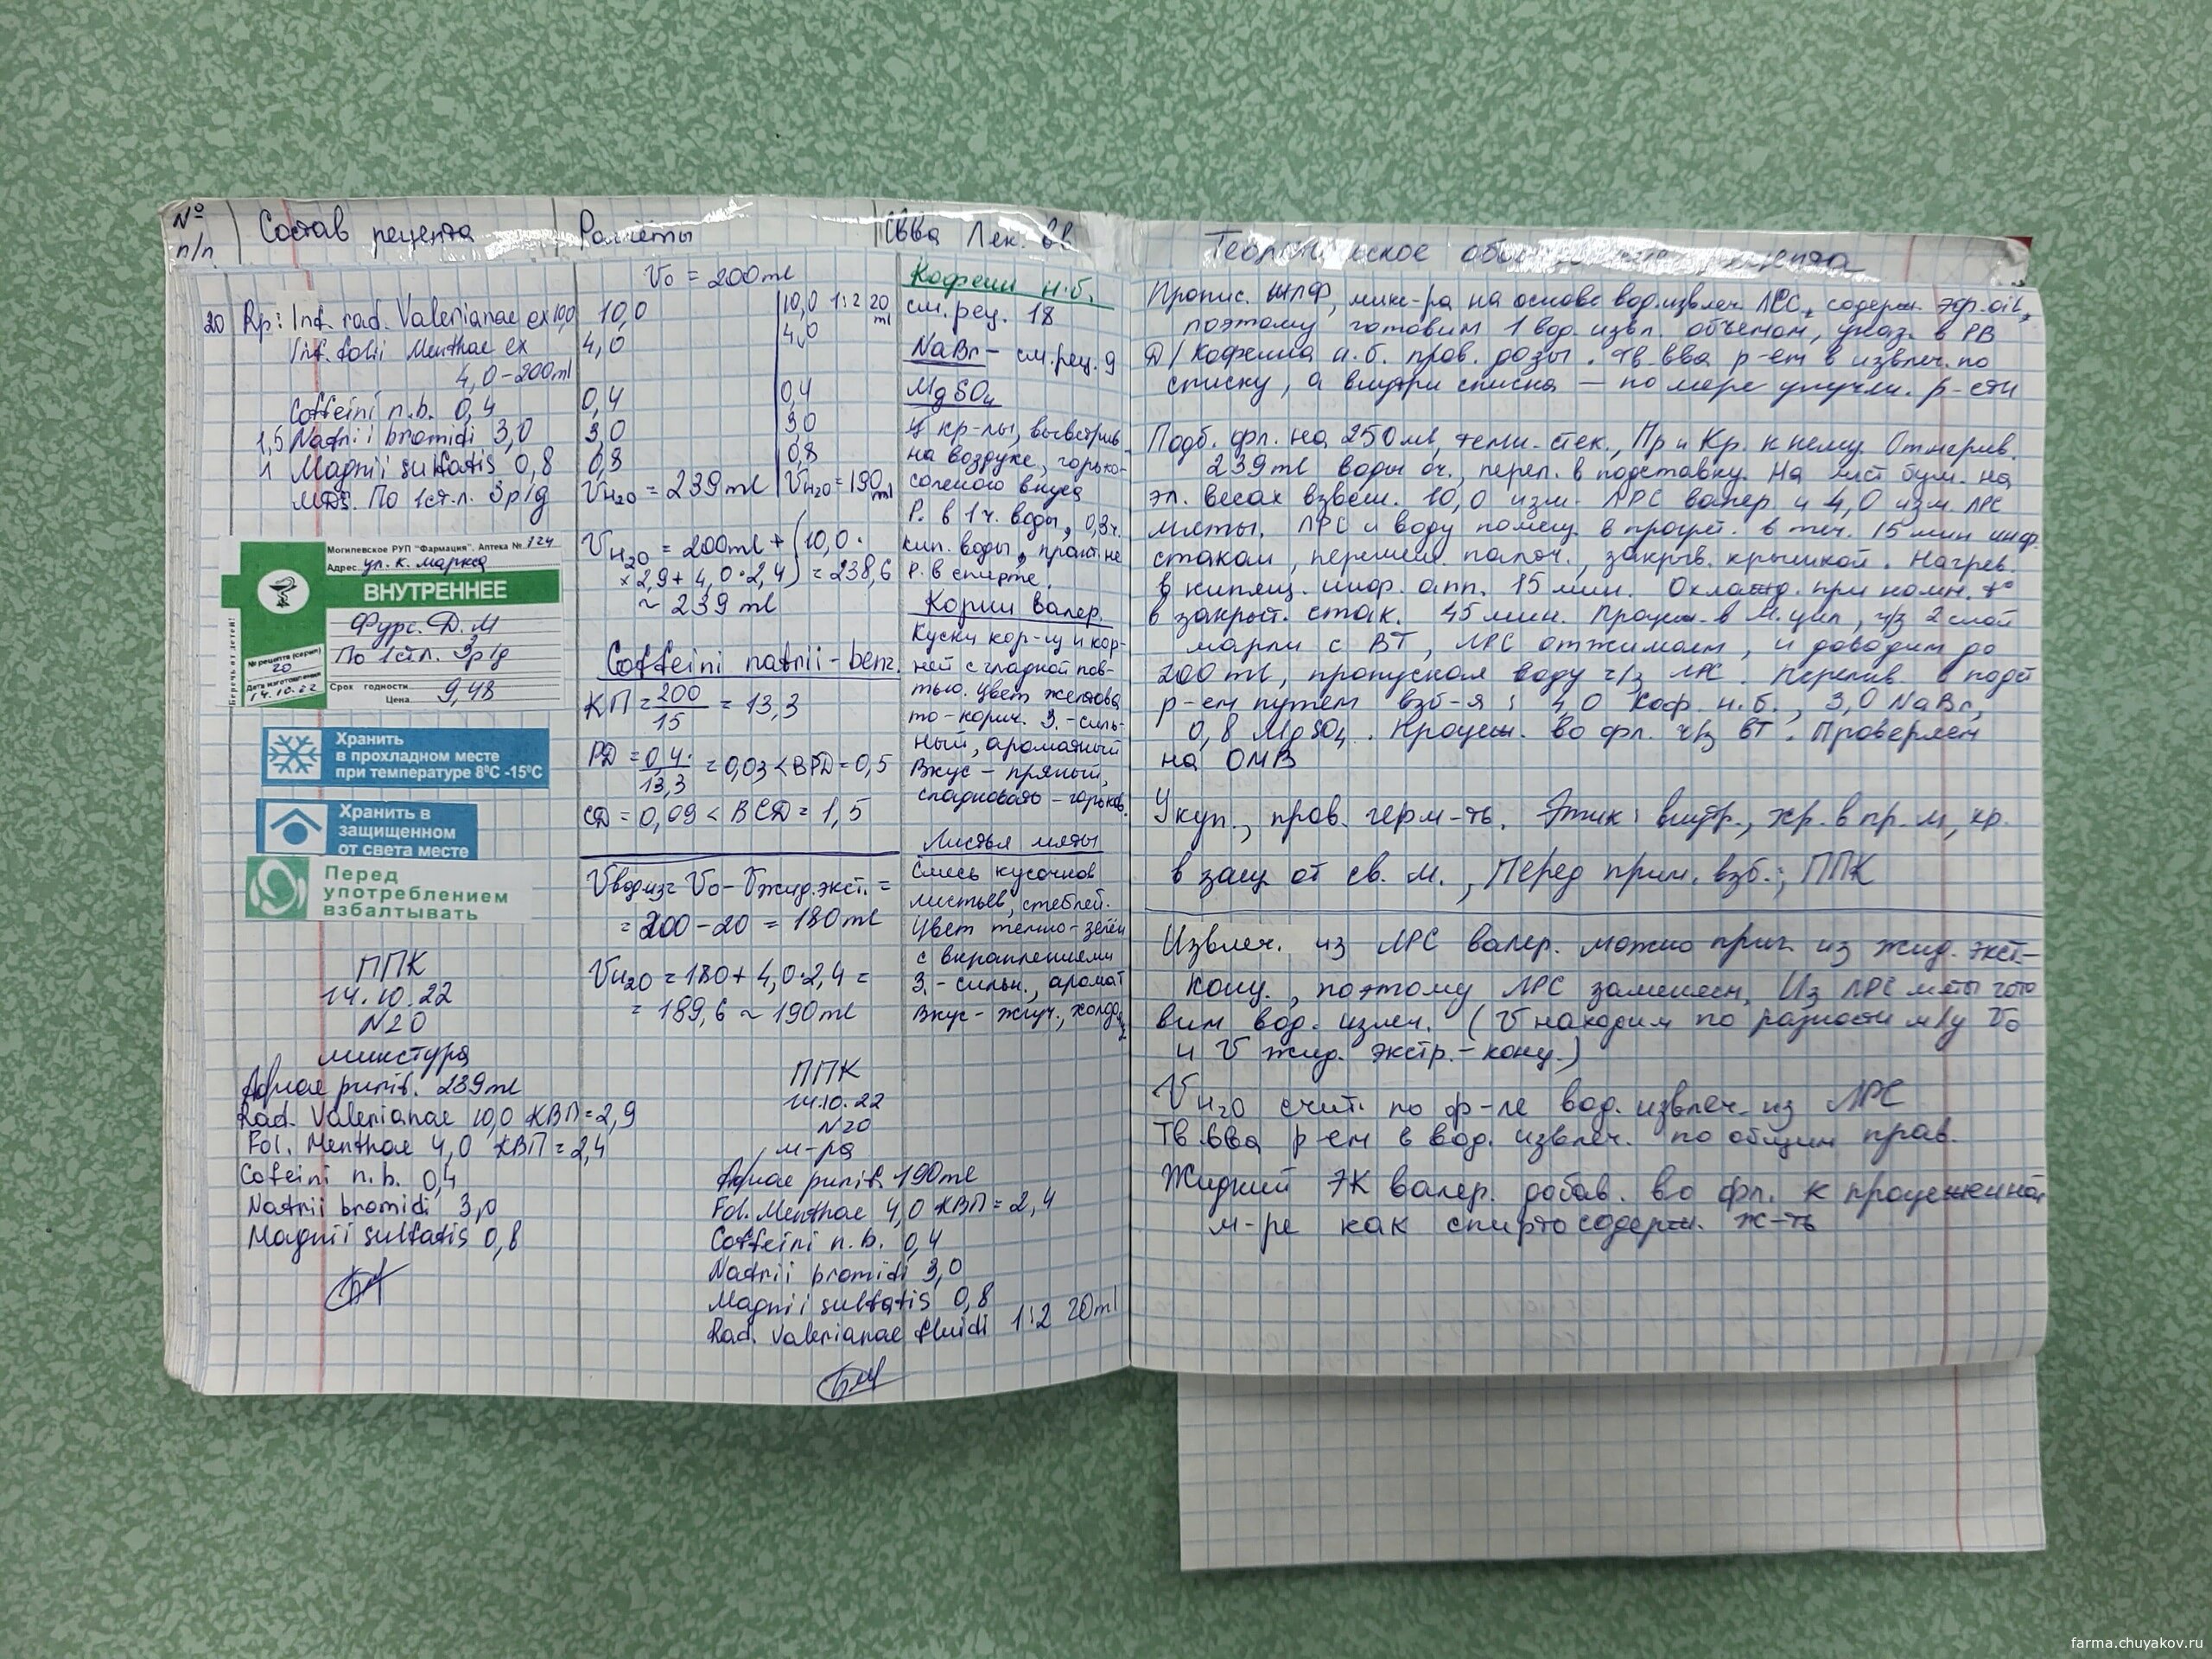 № п/п
Состав рецепта
Расчёты
Св-ва Лек. вв
Теоретическое
20 Rp: Inf. rad. Valerianae ex 10,0
Inf. folii Menthae ex
4,0-200ml
Coffeini n.b. 0,4
1,5 Natrii bromidi 3,0
1 Magnii sulfatis 0,8
MDS. По 1ст.л. 3р/д
Могилевское РУП "Фармация". Аптека № 124
Адрес ул. К. Маркса
ВНУТРЕННЕЕ
Беречь от детей!
Фурс. Д.М
По 1ст.л. 3р/д
№ рецепта (серия)
20
Дата изготовления
14.10.22
Срок годности
Цена 9,48
Хранить
в прохладном месте
при температуре 8⁰С -15⁰С
Хранить в
защищенном
от света месте
Перед
употреблением
взбалтывать
ППК
14.10.22
N20
микстура
Aquae purif. 239ml
Rad. Valerianae 10,0 КВП=2,9
Fol. Menthae 4,0 КВП=2,4
Cofeini n.b. 0,4
Natrii bromidi 3,0
Magnii sulfatis 0,8
V₀ = 200ml
10,0
4,0
0,4
3,0
0,8
V H₂O = 239ml
10,0 1:2 20 ml
4,0
0,4
3,0
0,8
V H₂O = 190 ml
V H₂O = 200ml + (10,0·
×2,9+4,0·2,4) = 238,6
~ 239 ml
Coffeini natrii-benz.
КП = 200/15 = 13,3
РД = 0,4/13,3 = 0,03 < ВРД = 0,5
СД = 0,09 < ВСД = 1,5
V вод из = V₀ - V жид. экст. =
= 200 - 20 = 180ml
V H₂O = 180 + 4,0·2,4 =
= 189,6 ~ 190ml
ППК
14.10.22
N20
м-ра
Aquae purif. 190ml
Fol. Menthae 4,0 КВП=2,4
Coffeini n.b. 0,4
Natrii bromidi 3,0
Magnii sulfatis 0,8
Rad. Valerianae fluidi 1:2 20ml
Кофеин н.б.
см. рец. 18
NaBr - см. рец. 9
MgSO₄
кр-лы, выветрив
на воздухе, горько-
соленого вкуса
Р. в 1 ч. воды, 0,3 ч.
кип. воды, практ. не
р. в спирте.
Корни валер.
Куски кор-щ и кор-
ней с гладкой пов-
тью. Цвет желтова
то-корич. З.-силь-
ный, ароматный
Вкус - пряный,
сладковато-горьков.
Листья мяты
Смесь кусочков
листьев, стеблей.
Цвет темно-зелён
с вкраплениями
З.-сильн., аромат
Вкус - жгуч., холод
Пропис. ЖЛФ, микс-ра на основе вод. извлеч. ЛРС, содерж. эфр. oil,
поэтому готовим 1 вод. извл. объемом, указ. в РВ
Д/ кофеина н.б. пров. дозы. Тв. вва р-ем в извлеч. по
списку, а внутри списка — по мере улучш. р-сти
Подб. фл. на 250ml, темн. стек., Пр и Кр. к нему. Отмерив.
239ml воды оч., перел. в подставку. На лист бум. на
эл. весах взвеш. 10,0 изм. ЛРС валер и 4,0 изм. ЛРС
мяты. ЛРС и воду помещ. в прогрет. в теч. 15 мин инф.
стакан, перемеш. палоч., закрыв. крышкой. Нагрев.
в кипящ. инф. апп. 15 мин. Охлажд. при комн. t°
в закрыт. стак. 45 мин. Процеж. в м. цил, ч/з 2 слой
марли с ВТ, ЛРС отжимаем, и доводим до
200ml, пропуская воду ч/з ЛРС. Перелив. в подст
р-ем путем взб-я: 4,0 Коф. н.б., 3,0 NaBr,
0,8 MgSO₄. Процеж. во фл. ч/з ВТ. Проверяем
на ОМВ
Укуп., пров. герм-ть. Этик: внутр., хр. в пр. м, хр.
в защ от св. м., Перед прим. взб.; ППК
Извлеч. из ЛРС валер. можно приг. из жид. экст-
конц., поэтому ЛРС заменяем. Из ЛРС мяты гото
вим вод. извлеч. (V находим по разности м/у V₀
и V жид. экстр.-конц.)
V H₂O счит. по ф-ле вод. извлеч. из ЛРС
Тв. вва р-ем в вод. извлеч. по общим прав.
Жидкий ЭК валер. добав. во фл. к процеженной
м-ре как спиртосодерж. ж-ть
farma.chuyakov.ru